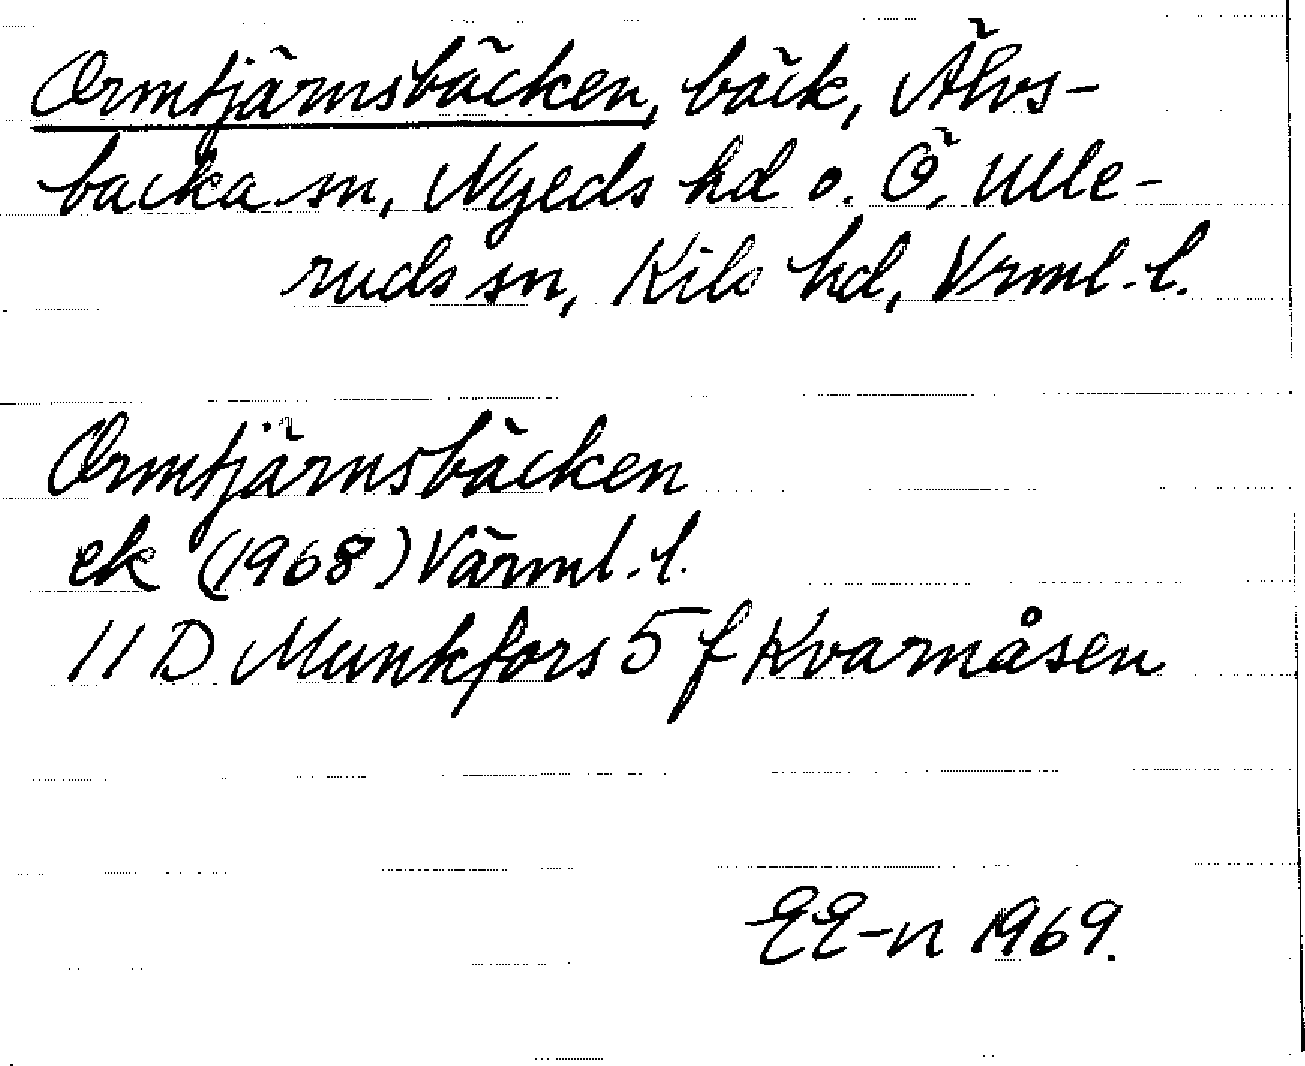 Ormtjärnsbäcken, bäck, Älvs-
backa sn, Nyeds hd o. Ö. Ulle-
ruds sn, Kils hd, Vrml. l.
Ormtjärnsbäcken
ek (1968) Värml. l.
11 D Munkfors 5 f Kvarnåsen
EE-n 1969.